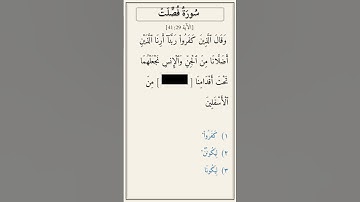 سُورَةُ فُصِّلَتْ
[الآية 41:29]
وَقَالَ ٱلَّذِينَ كَفَرُوا۟ رَبَّنَآ أَرِنَا ٱلَّذَيْنِ
أَضَلَّانَا مِنَ ٱلْجِنِّ وَٱلْإِنسِ نَجْعَلْهُمَا
تَحْتَ أَقْدَامِنَا [ ] مِنَ
ٱلْأَسْفَلِينَ
١) كَفَرُوا۟
٢) لِيَكُونَنَّ
٣) لِيَكُونَا